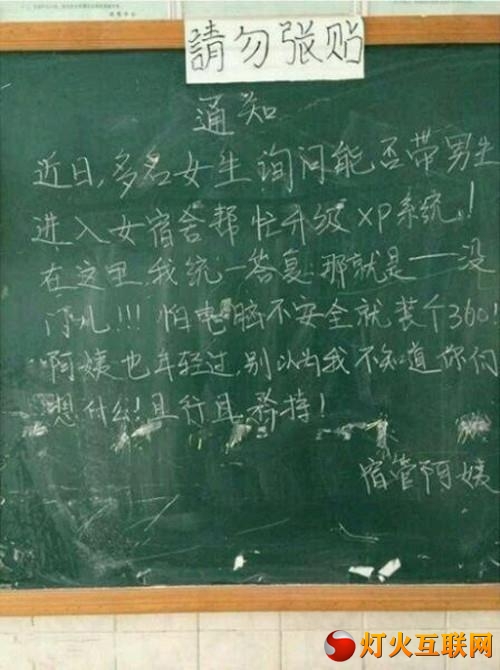 請勿张贴
通知
近日,多名女生询问能否带男生
进入女宿舍帮忙升级XP系统!
在这里我统一答复:那就是——没
门儿!!!怕电脑不安全就装个360!
阿姨也年轻过,别以为我不知道你们
想什么!且行且矜持!
宿管阿姨
灯火互联网